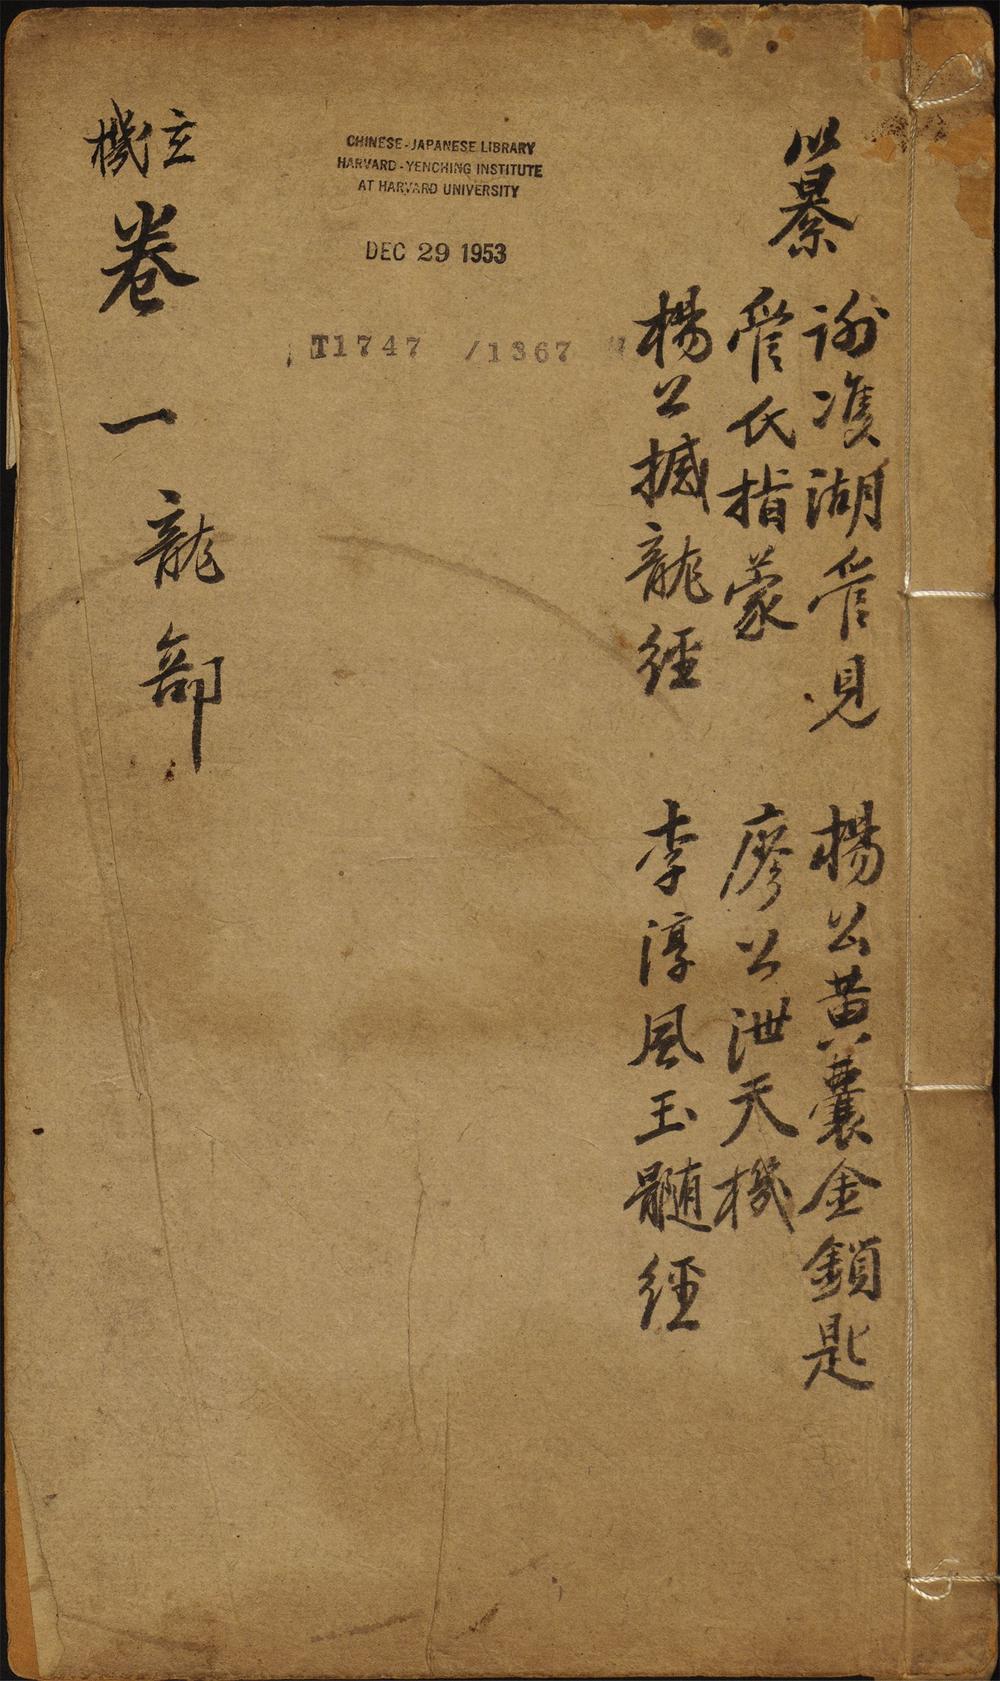 纂
謝雙湖管見 楊公黃囊金鎖匙
管氏指蒙 廖公泄天機
楊公撼龍經 李淳風玉髓經
CHINESE-JAPANESE LIBRARY
HARVARD-YENCHING INSTITUTE
AT HARVARD UNIVERSITY
DEC 29 1953
T1747 /1367
玄機
卷一 龍部